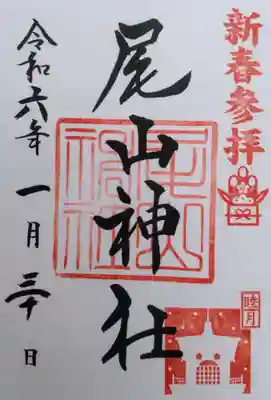 新春参拝
睦月
尾山神社
尾山神社
令和六年一月三十日